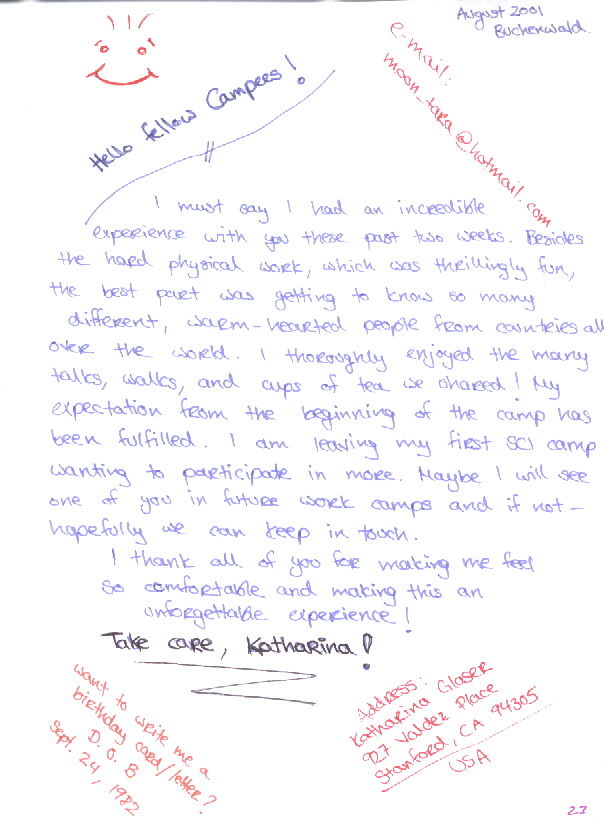 August 2001
Buchenwald.
e-mail:
moon_tara@hotmail.com
Hello fellow Campees!
I must say I had an incredible
experience with you these past two weeks. Besides
the hard physical work, which was thrillingly fun,
the best part was getting to know so many
different, warm-hearted people from countries all
over the world. I thoroughly enjoyed the many
talks, walks, and cups of tea we shared! My
expectation from the beginning of the camp has
been fulfilled. I am leaving my first SCI camp
wanting to participate in more. Maybe I will see
one of you in future work camps and if not –
hopefully we can keep in touch.
I thank all of you for making me feel
so comfortable and making this an
unforgettable experience!
Take care, Katharina!
want to write me a
birthday card/letter?
D.O.B
Sept. 24, 1982
Address:
Katharina Glaser
927 Valdez Place
Stanford, CA 94305
USA
23